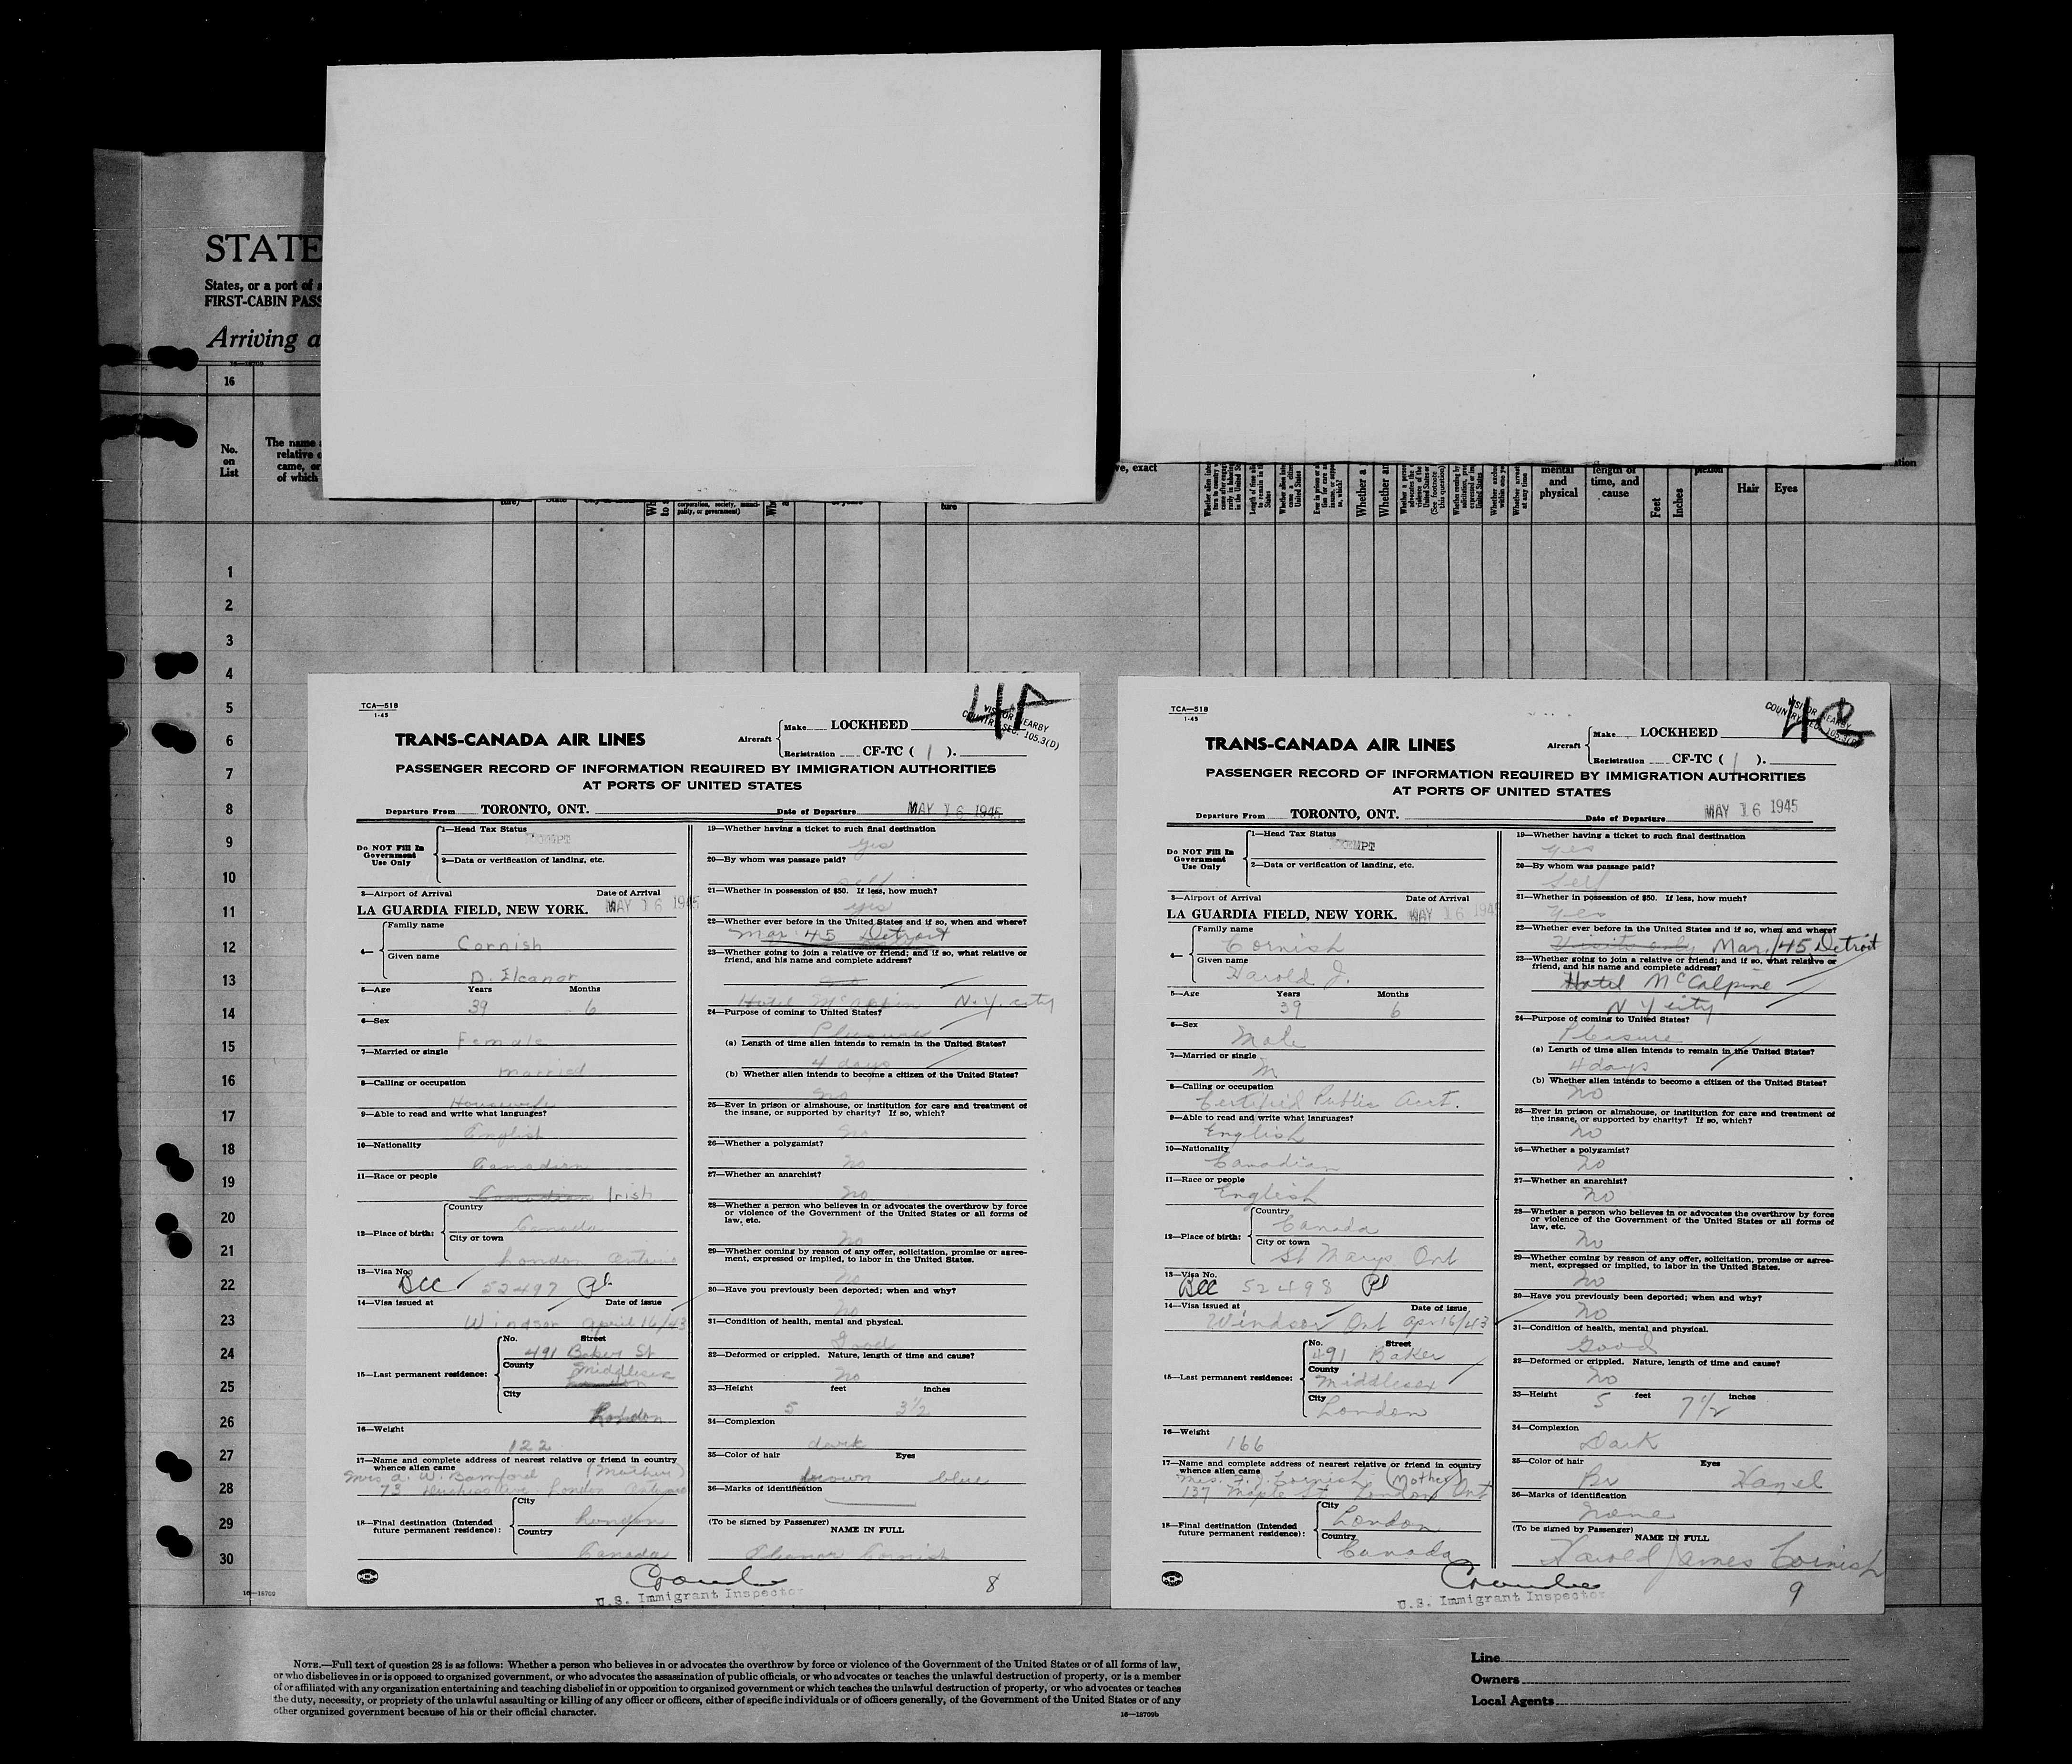 STATE
States, or a port of a
FIRST-CABIN PASS
Arriving a
16
No.
on
List
The name
relative
came, or
of which
ve, exact
corporation, society, munici-
pality, or government)
ture
mental
and
physical
length of
time, and
cause
Feet
Inches
Hair
Eyes
1
2
3
4
5
6
7
8
9
10
11
12
13
14
15
16
17
18
19
20
21
22
23
24
25
26
27
28
29
30
16—18709
TCA—518
1-45
4A
VISITOR NEARBY
COUNTRY SEC. 105.3(D)
TRANS-CANADA AIR LINES
Aircraft
Make LOCKHEED
Registration CF-TC ( 1 ).
PASSENGER RECORD OF INFORMATION REQUIRED BY IMMIGRATION AUTHORITIES
AT PORTS OF UNITED STATES
Departure From TORONTO, ONT. Date of Departure MAY 16 1945
Do NOT Fill In
Government
Use Only
1—Head Tax Status
EXEMPT
2—Data or verification of landing, etc.
3—Airport of Arrival Date of Arrival
LA GUARDIA FIELD, NEW YORK. MAY 16 1945
4—
Family name
Cornish
Given name
D. Eleanor
5—Age Years Months
39 6
6—Sex
Female
7—Married or single
married
8—Calling or occupation
Housewife
9—Able to read and write what languages?
English
10—Nationality
Canadian
11—Race or people
Canadian Irish
12—Place of birth:
Country
Canada
City or town
London Ontario
13—Visa No.
BCC 52497
14—Visa issued at Date of issue
Windsor April 16/43
15—Last permanent residence:
No. Street
491 Baker St
County
Middlesex
City
London
16—Weight
122
17—Name and complete address of nearest relative or friend in country
whence alien came
Mrs A. W. Bamford (Mother)
73 Duchess Ave. London Ontario
18—Final destination (Intended
future permanent residence):
City
London
Country
Canada
19—Whether having a ticket to such final destination
yes
20—By whom was passage paid?
self
21—Whether in possession of $50. If less, how much?
yes
22—Whether ever before in the United States and if so, when and where?
Mar. 45 Detroit
23—Whether going to join a relative or friend; and if so, what relative or
friend, and his name and complete address?
no
Hotel McAlpin N.Y. city
24—Purpose of coming to United States?
Pleasure
(a) Length of time alien intends to remain in the United States?
4 days
(b) Whether alien intends to become a citizen of the United States?
no
25—Ever in prison or almshouse, or institution for care and treatment of
the insane, or supported by charity? If so, which?
no
26—Whether a polygamist?
no
27—Whether an anarchist?
no
28—Whether a person who believes in or advocates the overthrow by force
or violence of the Government of the United States or all forms of
law, etc.
no
29—Whether coming by reason of any offer, solicitation, promise or agree-
ment, expressed or implied, to labor in the United States.
no
30—Have you previously been deported; when and why?
no
31—Condition of health, mental and physical.
Good
32—Deformed or crippled. Nature, length of time and cause?
no
33—Height feet inches
5 3½
34—Complexion
dark
35—Color of hair Eyes
brown blue
36—Marks of identification
(To be signed by Passenger)
NAME IN FULL
Eleanor Cornish
U.S. Immigrant Inspector
8
TCA—518
1-45
4B
VISITOR NEARBY
COUNTRY SEC. 105.3(D)
TRANS-CANADA AIR LINES
Aircraft
Make LOCKHEED
Registration CF-TC ( 1 ).
PASSENGER RECORD OF INFORMATION REQUIRED BY IMMIGRATION AUTHORITIES
AT PORTS OF UNITED STATES
Departure From TORONTO, ONT. Date of Departure MAY 16 1945
Do NOT Fill In
Government
Use Only
1—Head Tax Status
EXEMPT
2—Data or verification of landing, etc.
3—Airport of Arrival Date of Arrival
LA GUARDIA FIELD, NEW YORK. MAY 16 1945
4—
Family name
Cornish
Given name
Harold J.
5—Age Years Months
39 6
6—Sex
Male
7—Married or single
M
8—Calling or occupation
Certified Public Acct.
9—Able to read and write what languages?
English
10—Nationality
Canadian
11—Race or people
English
12—Place of birth:
Country
Canada
City or town
St Marys Ont
13—Visa No.
BCC 52498
14—Visa issued at Date of issue
Windsor Ont Apr 16/43
15—Last permanent residence:
No. Street
491 Baker
County
Middlesex
City
London
16—Weight
166
17—Name and complete address of nearest relative or friend in country
whence alien came
Mrs. F. J. Cornish (Mother)
137 Maple St London Ont
18—Final destination (Intended
future permanent residence):
City
London
Country
Canada
19—Whether having a ticket to such final destination
yes
20—By whom was passage paid?
Self
21—Whether in possession of $50. If less, how much?
Yes
22—Whether ever before in the United States and if so, when and where?
Visits only Mar/45 Detroit
23—Whether going to join a relative or friend; and if so, what relative or
friend, and his name and complete address?
Hotel McCalpine
N Y city
24—Purpose of coming to United States?
Pleasure
(a) Length of time alien intends to remain in the United States?
4 days
(b) Whether alien intends to become a citizen of the United States?
no
25—Ever in prison or almshouse, or institution for care and treatment of
the insane, or supported by charity? If so, which?
no
26—Whether a polygamist?
no
27—Whether an anarchist?
no
28—Whether a person who believes in or advocates the overthrow by force
or violence of the Government of the United States or all forms of
law, etc.
no
29—Whether coming by reason of any offer, solicitation, promise or agree-
ment, expressed or implied, to labor in the United States.
no
30—Have you previously been deported; when and why?
no
31—Condition of health, mental and physical.
Good
32—Deformed or crippled. Nature, length of time and cause?
no
33—Height feet inches
5 7½
34—Complexion
Dark
35—Color of hair Eyes
Br Hazel
36—Marks of identification
none
(To be signed by Passenger)
NAME IN FULL
Harold James Cornish
U.S. Immigrant Inspector
9
NOTE.—Full text of question 28 is as follows: Whether a person who believes in or advocates the overthrow by force or violence of the Government of the United States or of all forms of law,
or who disbelieves in or is opposed to organized government, or who advocates the assassination of public officials, or who advocates or teaches the unlawful destruction of property, or is a member
of or affiliated with any organization entertaining and teaching disbelief in or opposition to organized government or which teaches the unlawful destruction of property, or who advocates or teaches
the duty, necessity, or propriety of the unlawful assaulting or killing of any officer or officers, either of specific individuals or of officers generally, of the Government of the United States or of any
other organized government because of his or their official character.
16—18709b
Line
Owners
Local Agents